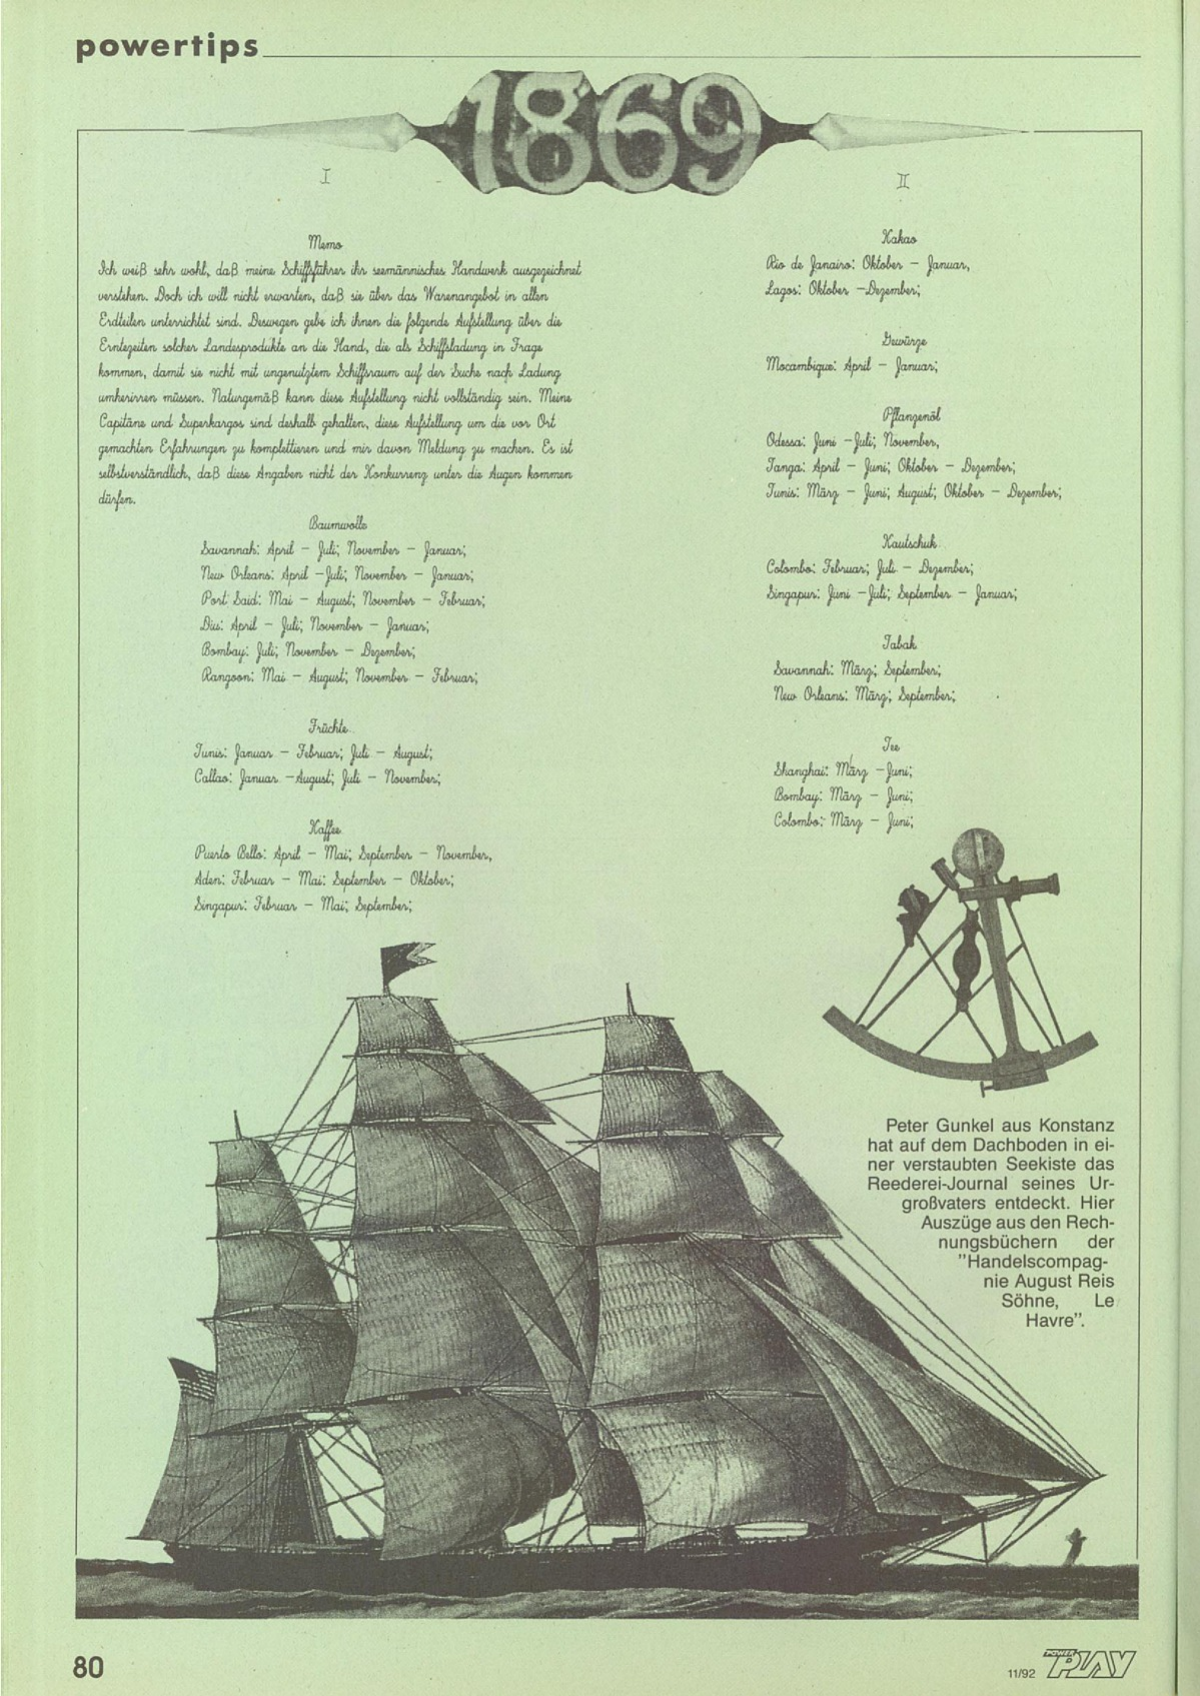 powertips
1869
I
Memo
Ich weiß sehr wohl, daß meine Schiffsführer ihr seemännisches Handwerk ausgezeichnet
verstehen. Doch ich will nicht erwarten, daß sie über das Warenangebot in allen
Erdteilen unterrichtet sind. Deswegen gebe ich ihnen die folgende Aufstellung über die
Erntezeiten solcher Landesprodukte an die Hand, die als Schiffsladung in Frage
kommen, damit sie nicht mit ungenutztem Schiffsraum auf der Suche nach Ladung
umherirren müssen. Naturgemäß kann diese Aufstellung nicht vollständig sein. Meine
Capitäne und Superkargos sind deshalb gehalten, diese Aufstellung um die vor Ort
gemachten Erfahrungen zu komplettieren und mir davon Meldung zu machen. Es ist
selbstverständlich, daß diese Angaben nicht der Konkurrenz unter die Augen kommen
dürfen.
Baumwolle
Savannah: April – Juli; November – Januar;
New Orleans: April –Juli; November – Januar;
Port Said: Mai – August; November – Februar;
Diu: April – Juli; November – Januar;
Bombay: Juli; November – Dezember;
Rangoon: Mai – August; November – Februar;
Früchte
Tunis: Januar – Februar; Juli – August;
Callao: Januar –August; Juli – November;
Kaffee
Puerto Bello: April – Mai; September – November,
Aden: Februar – Mai: September – Oktober;
Singapur: Februar – Mai; September;
II
Kakao
Rio de Janairo: Oktober – Januar,
Lagos: Oktober –Dezember;
Gewürze
Mocambique: April – Januar;
Pflanzenöl
Odessa: Juni –Juli; November,
Tanga: April – Juni; Oktober – Dezember;
Tunis: März – Juni; August; Oktober – Dezember;
Kautschuk
Colombo: Februar; Juli – Dezember;
Singapur: Juni –Juli; September – Januar;
Tabak
Savannah: März; September;
New Orleans: März; September;
Tee
Shanghai: März –Juni;
Bombay: März – Juni;
Colombo: März – Juni;
Peter Gunkel aus Konstanz
hat auf dem Dachboden in ei-
ner verstaubten Seekiste das
Reederei-Journal seines Ur-
großvaters entdeckt. Hier
Auszüge aus den Rech-
nungsbüchern der
"Handelscompag-
nie August Reis
Söhne, Le
Havre".
80
11/92 POWER PLAY